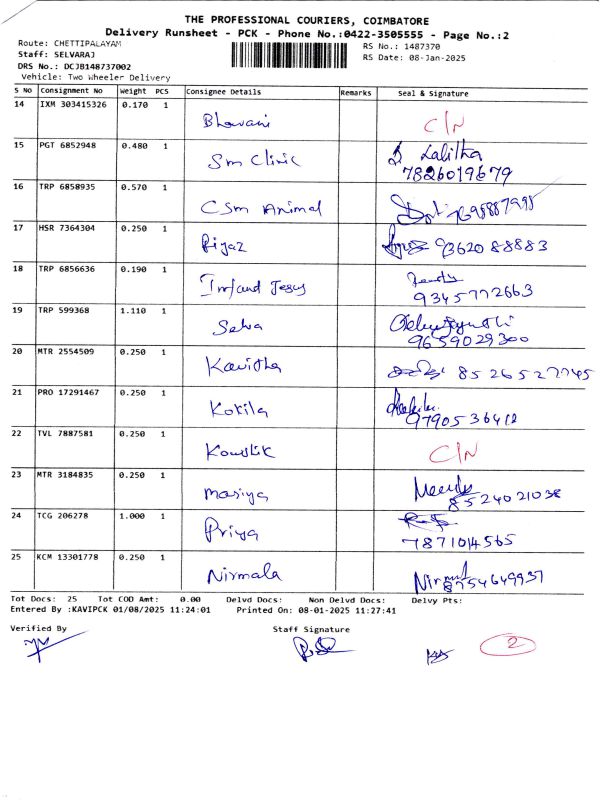 THE PROFESSIONAL COURIERS, COIMBATORE
Delivery Runsheet - PCK - Phone No.:0422-3505555 - Page No.:2
Route: CHETTIPALAYAM
Staff: SELVARAJ
DRS No.: DCJB148737002
Vehicle: Two Wheeler Delivery
RS No.: 1487370
RS Date: 08-Jan-2025
S No Consignment No Weight PCS Consignee Details Remarks Seal & Signature
14 IXM 303415326 0.170 1 Bhavani C/N
15 PGT 6852948 0.480 1 Sm Clinic Lalitha
7826019679
16 TRP 6858935 0.570 1 CSm Animal
17 HSR 7364304 0.250 1 Riyaz 93620 88883
18 TRP 6856636 0.190 1 Infand Jesus
9345772663
19 TRP 599368 1.110 1 Selva
9659029300
20 MTR 2554509 0.250 1 Kavitha 8526527745
21 PRO 17291467 0.250 1 Kokila
9790536412
22 TVL 7887581 0.250 1 Koushik C/N
23 MTR 3184835 0.250 1 mariya
8524021038
24 TCG 206278 1.000 1 Priya
7871014565
25 KCM 13301778 0.250 1 Nirmala 8754649937
Tot Docs: 25 Tot COD Amt: 0.00 Delvd Docs: Non Delvd Docs: Delvy Pts:
Entered By :KAVIPCK 01/08/2025 11:24:01 Printed On: 08-01-2025 11:27:41
Verified By Staff Signature
2